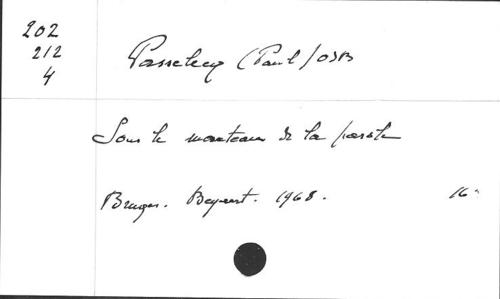 202
212
4
Passelecq (Paul) OSB
Sous le manteau de la parole
Bruges. Beyaert. 1968. 16°